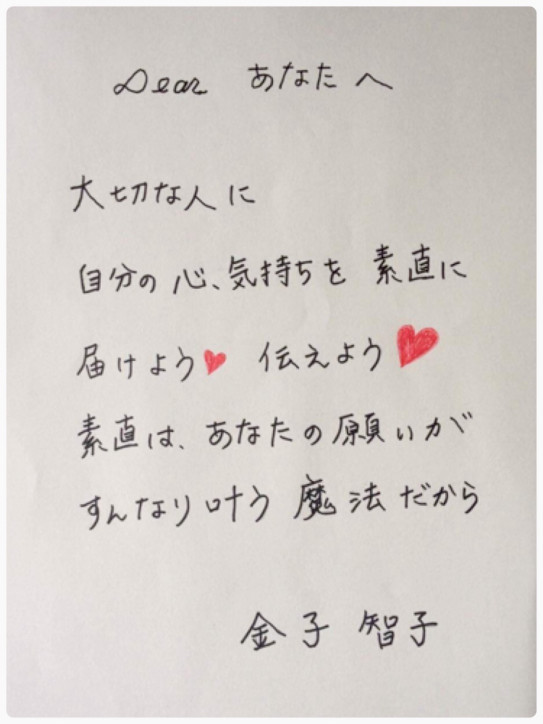 Dear あなたへ
大切な人に
自分の心、気持ちを 素直に
届けよう♥ 伝えよう♥
素直は、あなたの願いが
すんなり叶う 魔法だから
金子 智子